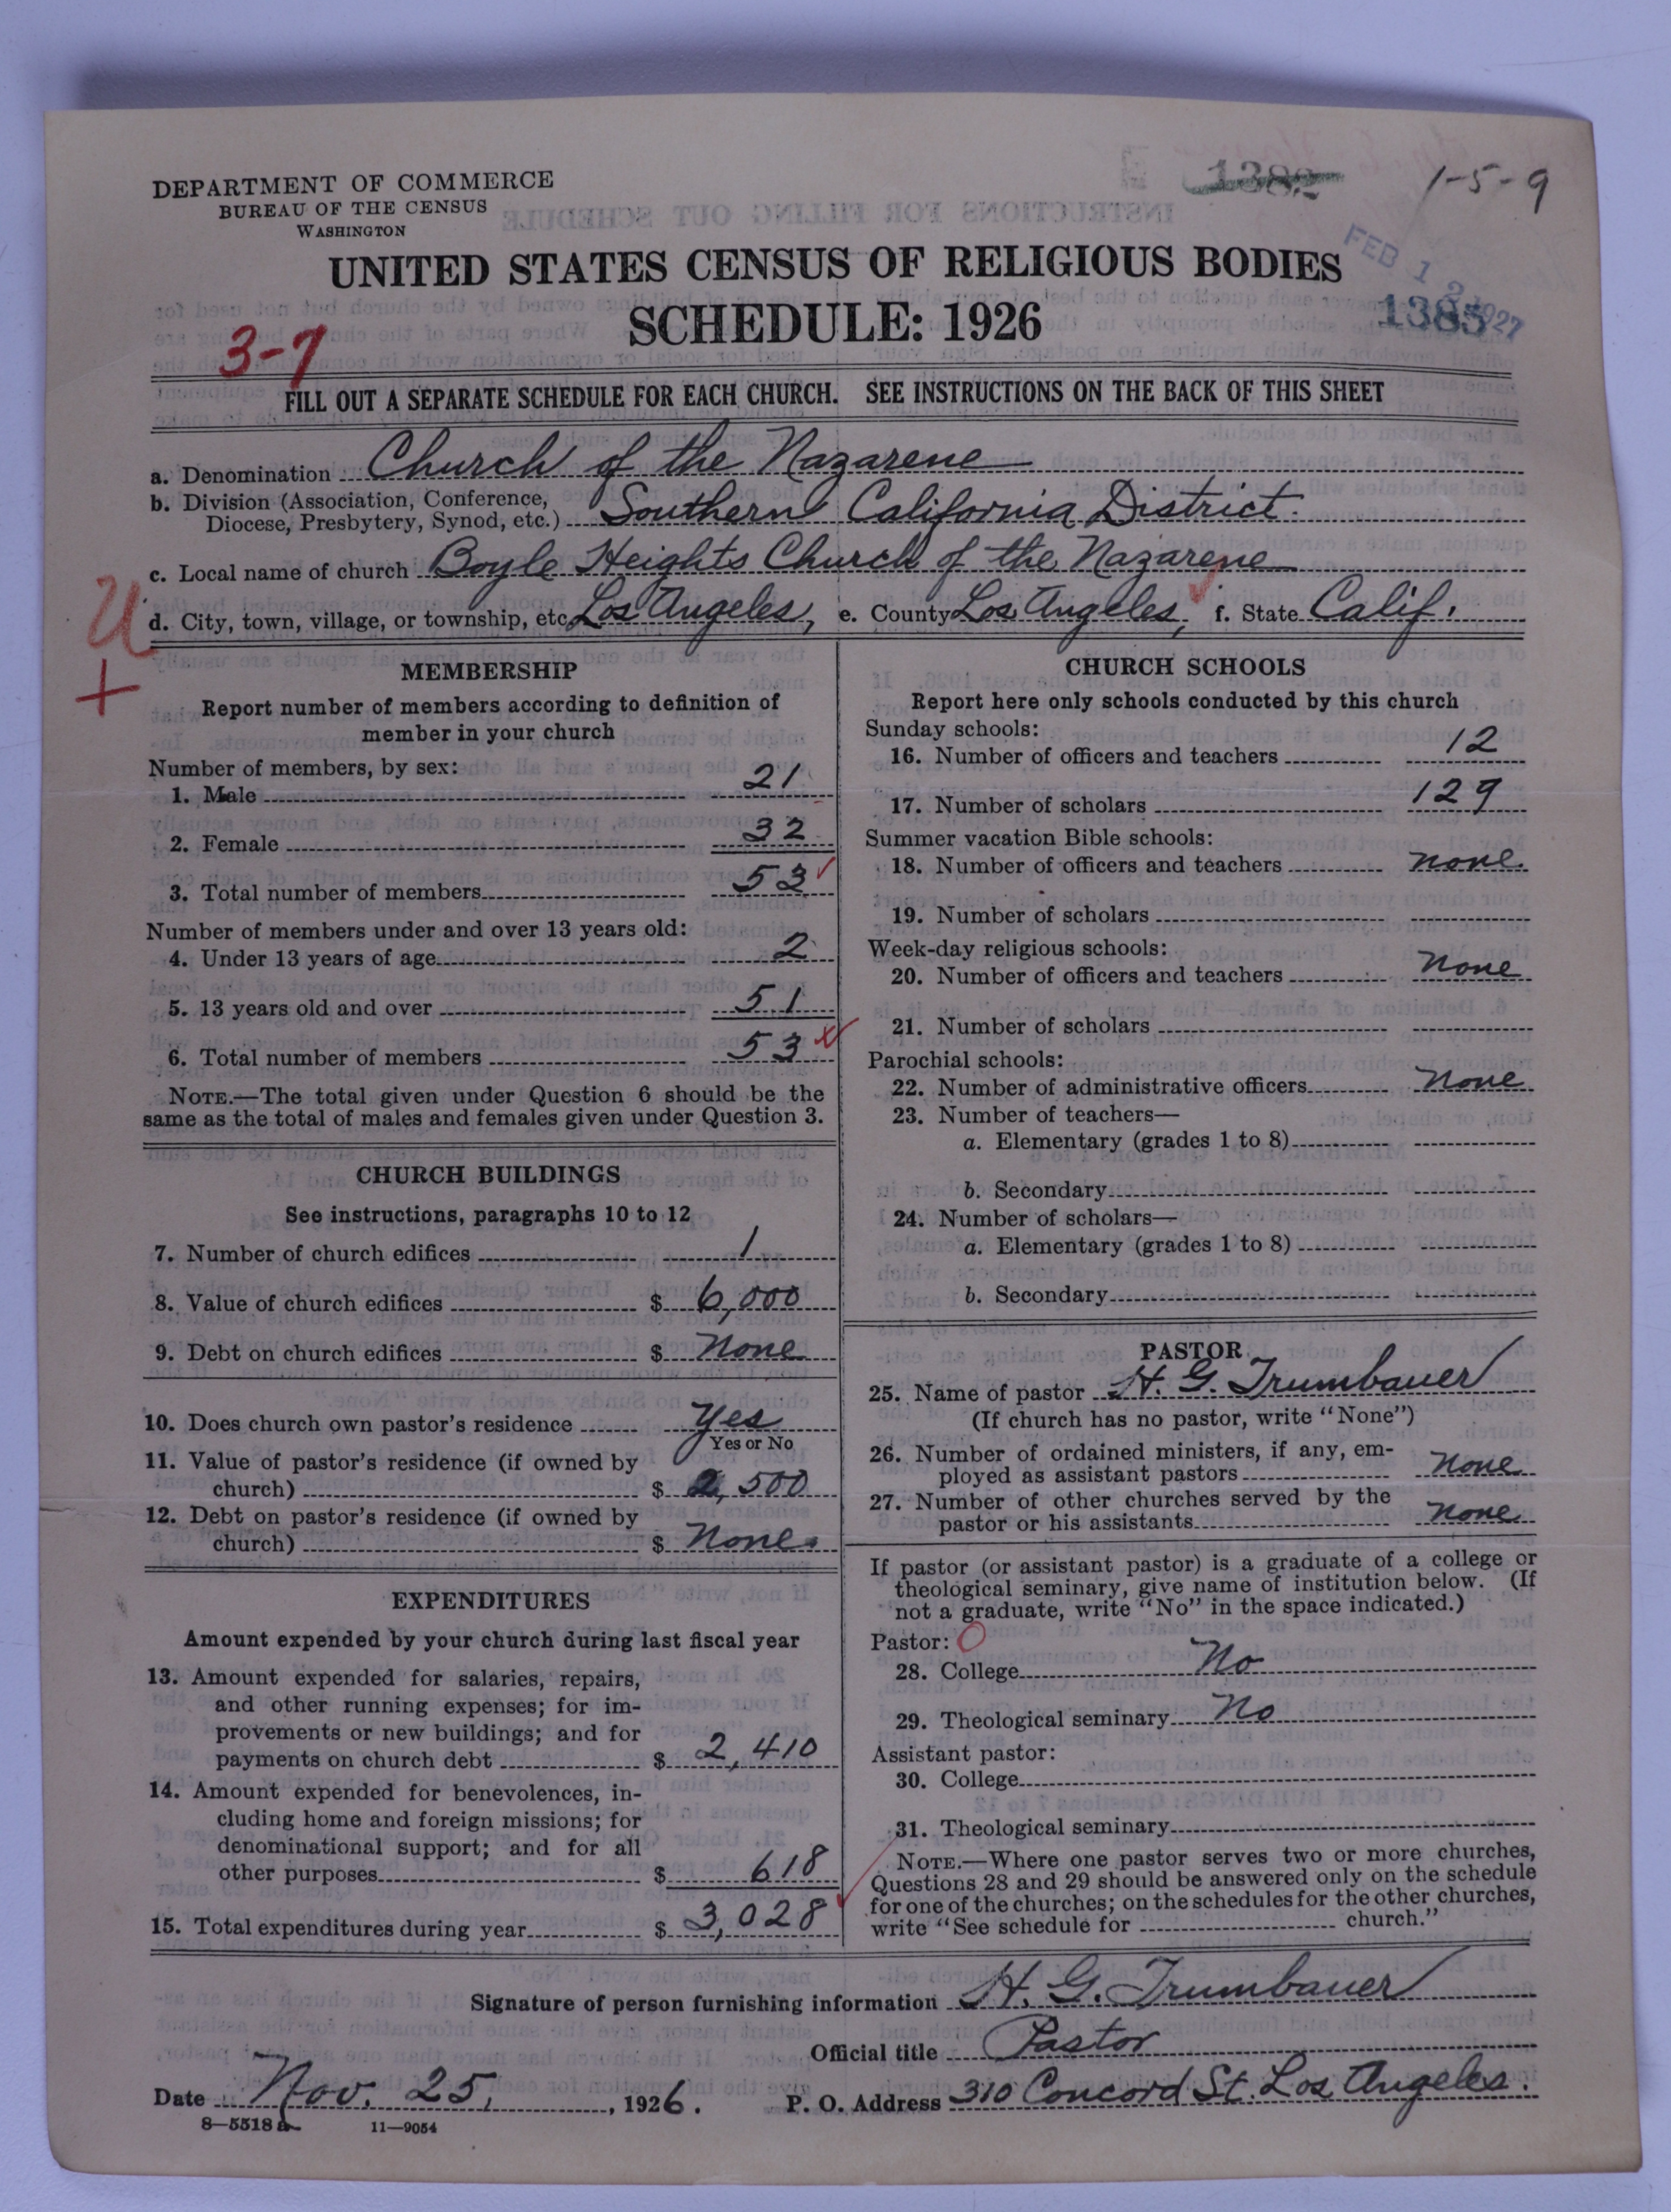 DEPARTMENT OF COMMERCE
BUREAU OF THE CENSUS
WASHINGTON
1382
1-5-9
UNITED STATES CENSUS OF RELIGIOUS BODIES
SCHEDULE: 1926
FEB 12 1927
1385
3-7
FILL OUT A SEPARATE SCHEDULE FOR EACH CHURCH. SEE INSTRUCTIONS ON THE BACK OF THIS SHEET
a. Denomination Church of the Nazarene
b. Division (Association, Conference,
Diocese, Presbytery, Synod, etc.) Southern California District.
c. Local name of church Boyle Heights Church of the Nazarene
U
d. City, town, village, or township, etc. Los Angeles, e. County Los Angeles, f. State Calif.
+
MEMBERSHIP
Report number of members according to definition of
member in your church
Number of members, by sex:
1. Male 21
2. Female 32
3. Total number of members 53
Number of members under and over 13 years old:
4. Under 13 years of age 2
5. 13 years old and over 51
6. Total number of members 53
NOTE.—The total given under Question 6 should be the
same as the total of males and females given under Question 3.
CHURCH BUILDINGS
See instructions, paragraphs 10 to 12
7. Number of church edifices 1
8. Value of church edifices $ 6,000
9. Debt on church edifices $ None
10. Does church own pastor's residence Yes
Yes or No
11. Value of pastor's residence (if owned by
church) $ 2,500
12. Debt on pastor's residence (if owned by
church) $ None.
EXPENDITURES
Amount expended by your church during last fiscal year
13. Amount expended for salaries, repairs,
and other running expenses; for im-
provements or new buildings; and for
payments on church debt $ 2,410
14. Amount expended for benevolences, in-
cluding home and foreign missions; for
denominational support; and for all
other purposes $ 618
15. Total expenditures during year $ 3,028
CHURCH SCHOOLS
Report here only schools conducted by this church
Sunday schools:
16. Number of officers and teachers 12
17. Number of scholars 129
Summer vacation Bible schools:
18. Number of officers and teachers none.
19. Number of scholars
Week-day religious schools:
20. Number of officers and teachers None
21. Number of scholars
Parochial schools:
22. Number of administrative officers None
23. Number of teachers—
a. Elementary (grades 1 to 8)
b. Secondary
24. Number of scholars—
a. Elementary (grades 1 to 8)
b. Secondary
PASTOR
25. Name of pastor H. G. Trumbauer
(If church has no pastor, write "None")
26. Number of ordained ministers, if any, em-
ployed as assistant pastors None
27. Number of other churches served by the
pastor or his assistants None
If pastor (or assistant pastor) is a graduate of a college or
theological seminary, give name of institution below. (If
not a graduate, write "No" in the space indicated.)
Pastor: O
28. College No
29. Theological seminary No
Assistant pastor:
30. College
31. Theological seminary
NOTE.—Where one pastor serves two or more churches,
Questions 28 and 29 should be answered only on the schedule
for one of the churches; on the schedules for the other churches,
write "See schedule for church."
Signature of person furnishing information H. G. Trumbauer
Official title Pastor
Date Nov. 25, 1926. P. O. Address 310 Concord St. Los Angeles.
8—5518 a 11—9054